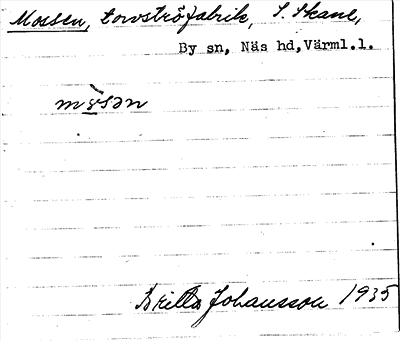 Mossen, torvströfabrik, S. Skane,
By sn, Näs hd, Värml.l.
Britta Johansson 1935